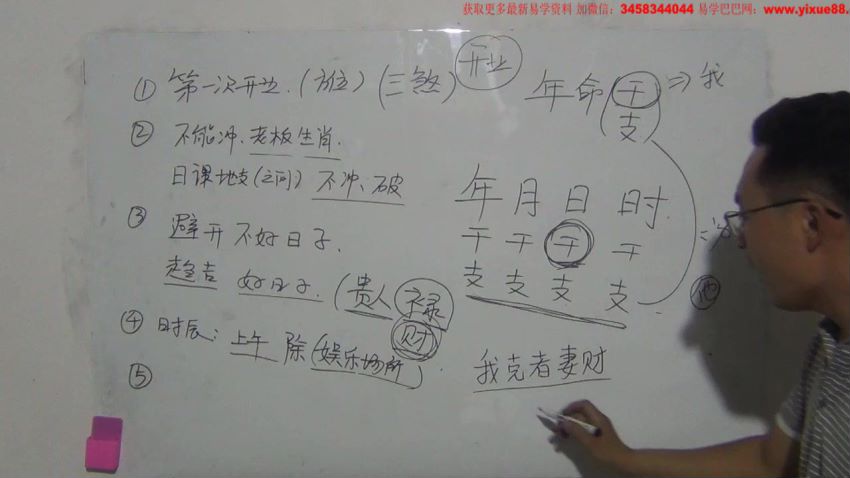 获取更多最新易学资料 加微信：3458344044 易学巴巴网：www.yixue88.
开业
① 第一次开业.（方位）（三煞）
② 不能冲、老板生肖.
日课地支（之间）不冲、破
③ 避开不好日子、
趋吉 好日子.（贵人 禄
财
④ 时辰：上午 除（娱乐场所）.
⑤
年命（干 ⇒ 我
支
年月日时
干 干 干 干
支 支 支 支
他
我克者妻财